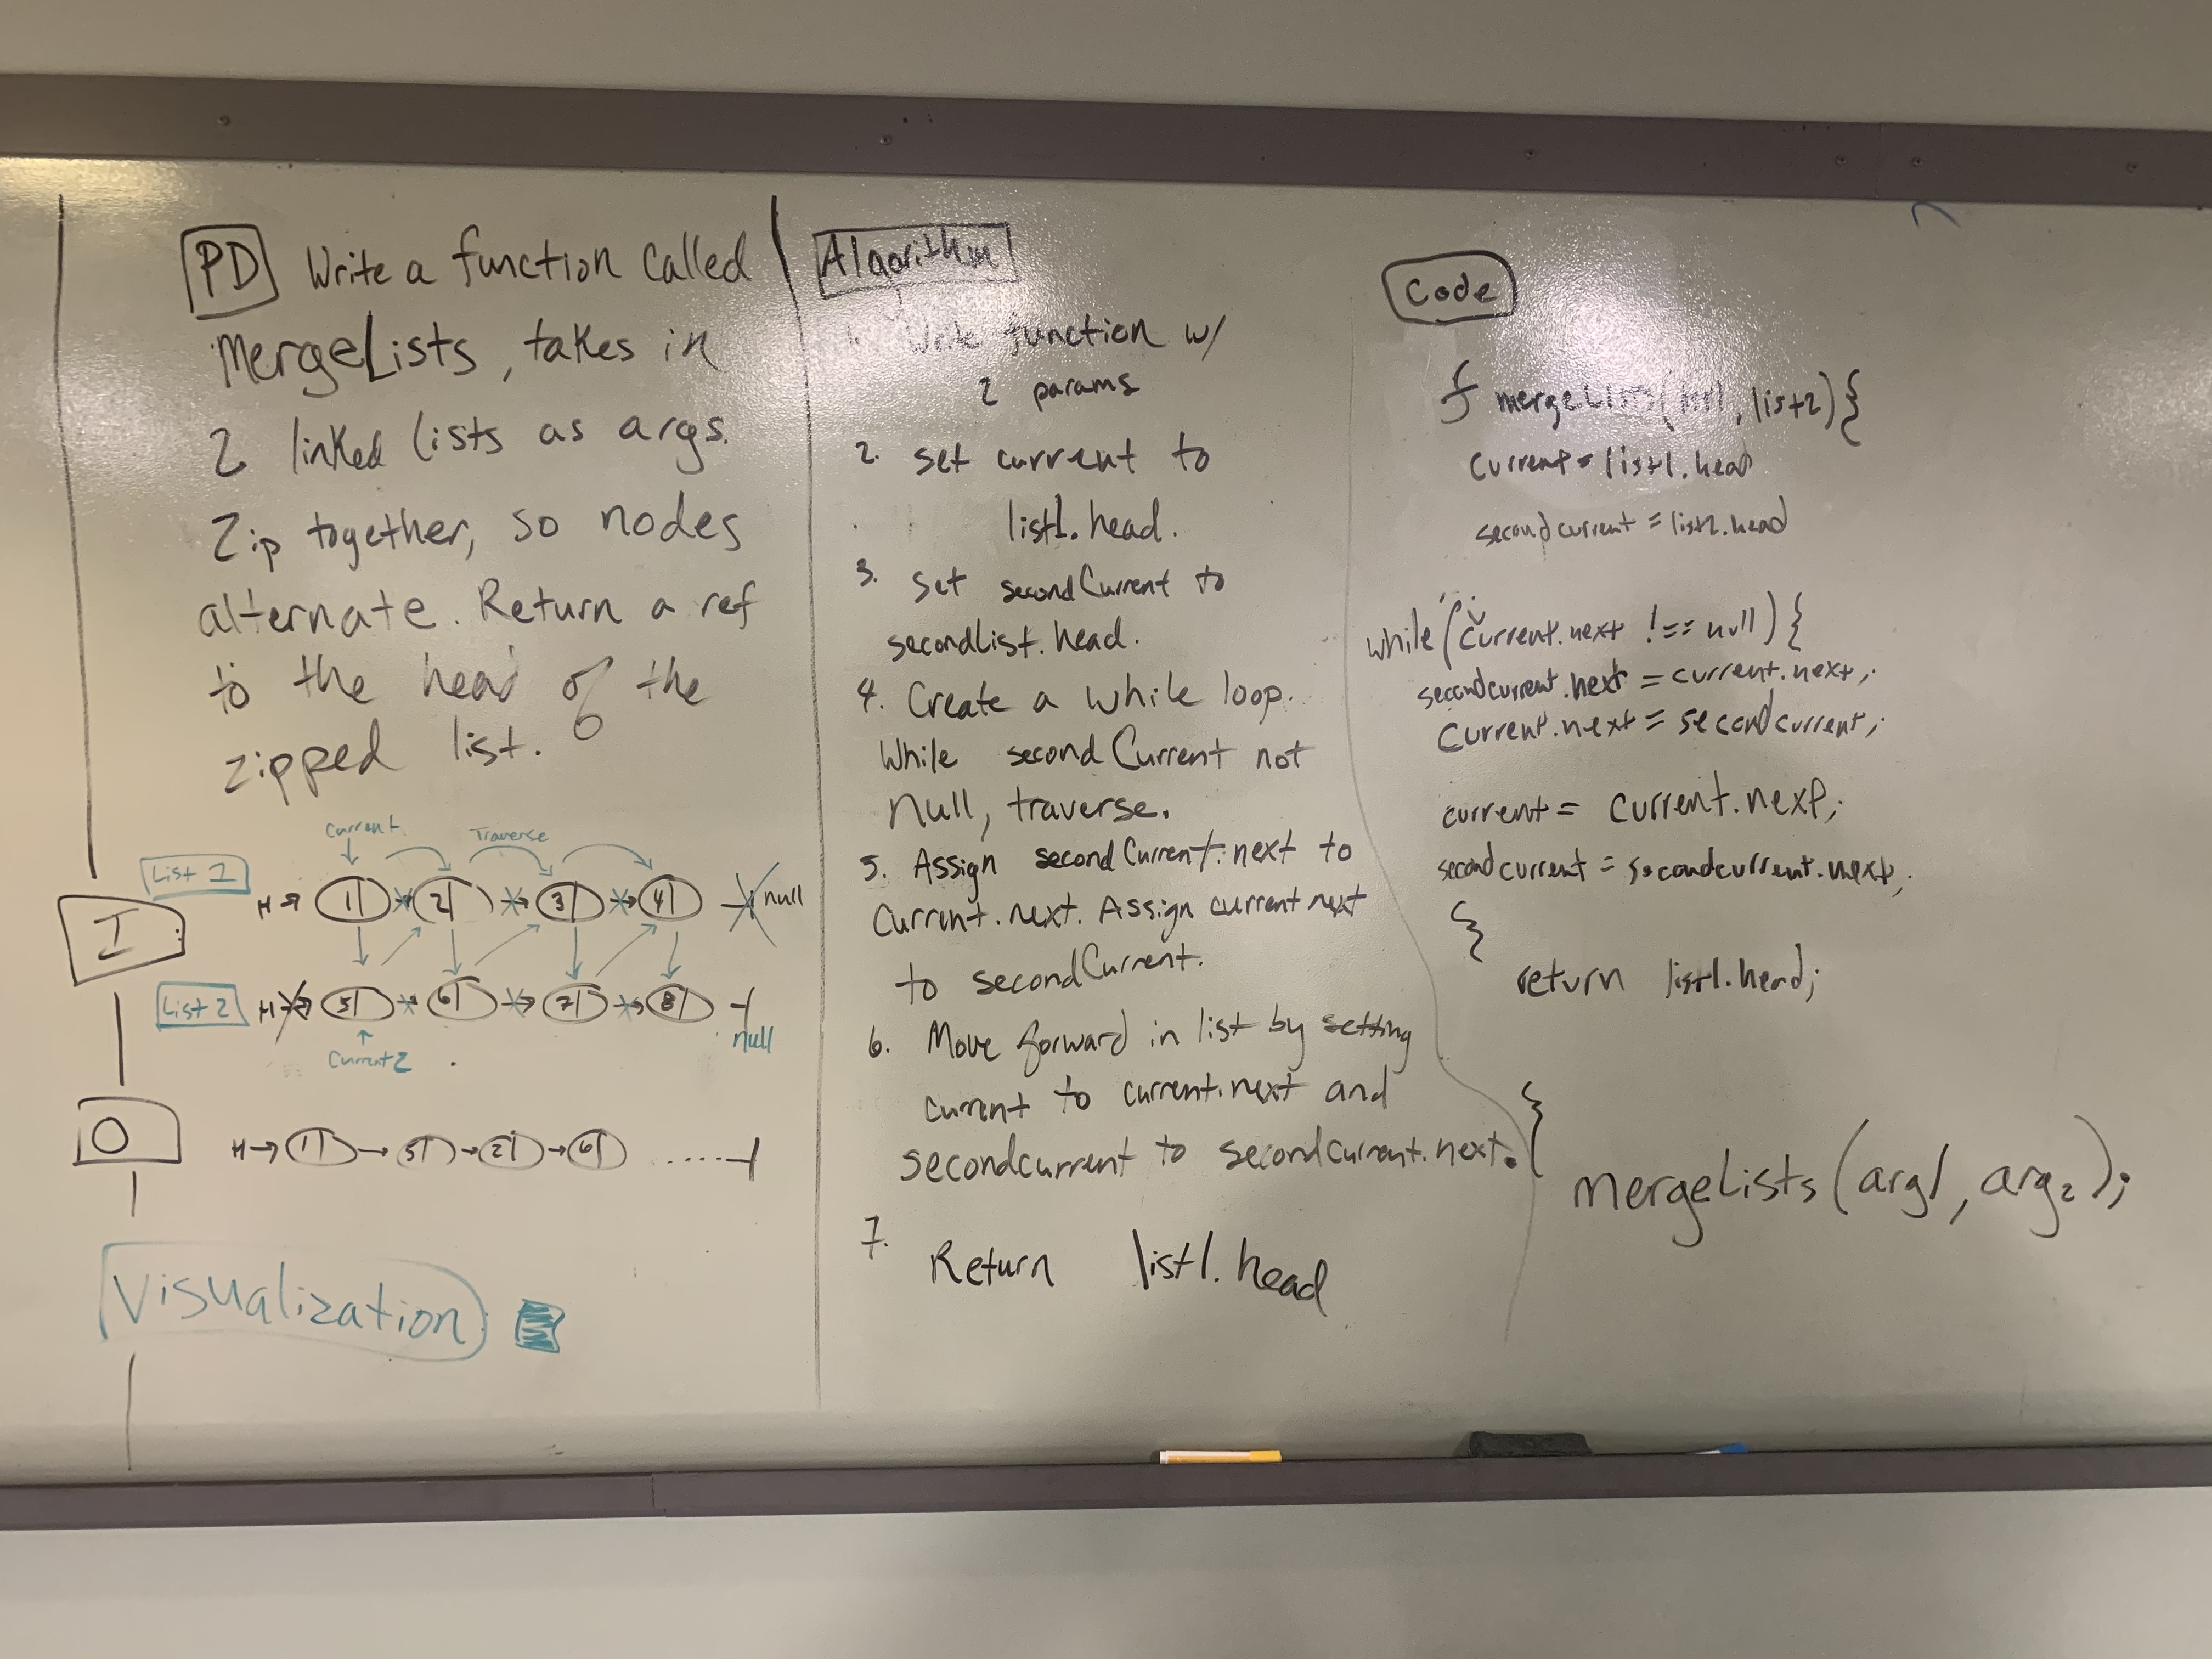 PD Write a function called
mergeLists, takes in
2 linked lists as args.
Zip together, so nodes
alternate. Return a ref
to the head of the
zipped list.
Current
Traverse
List 1
H → 1 2 3 4 null
I
List 2
H → 5 6 7 8
null
Current2
O
H → 1 → 5 → 2 → 6 .....
Visualization
Algorithm
1. Write function w/
2 params
2. set current to
list1.head.
3. set secondCurrent to
secondList.head.
4. Create a while loop.
While secondCurrent not
null, traverse.
5. Assign secondCurrent.next to
Current.next. Assign current next
to secondCurrent.
6. Move forward in list by setting
current to current.next and
secondcurrent to secondCurrent.next.
7. Return list1.head
Code
f mergeLists(list1, list2){
Current = list1.head
secondcurrent = list2.head
while (current.next !== null) {
secondcurrent.next = current.next;
Current.next = secondcurrent;
current = current.next;
secondcurrent = secondcurrent.next;
}
return list1.head;
}
mergeLists(arg1, arg2);